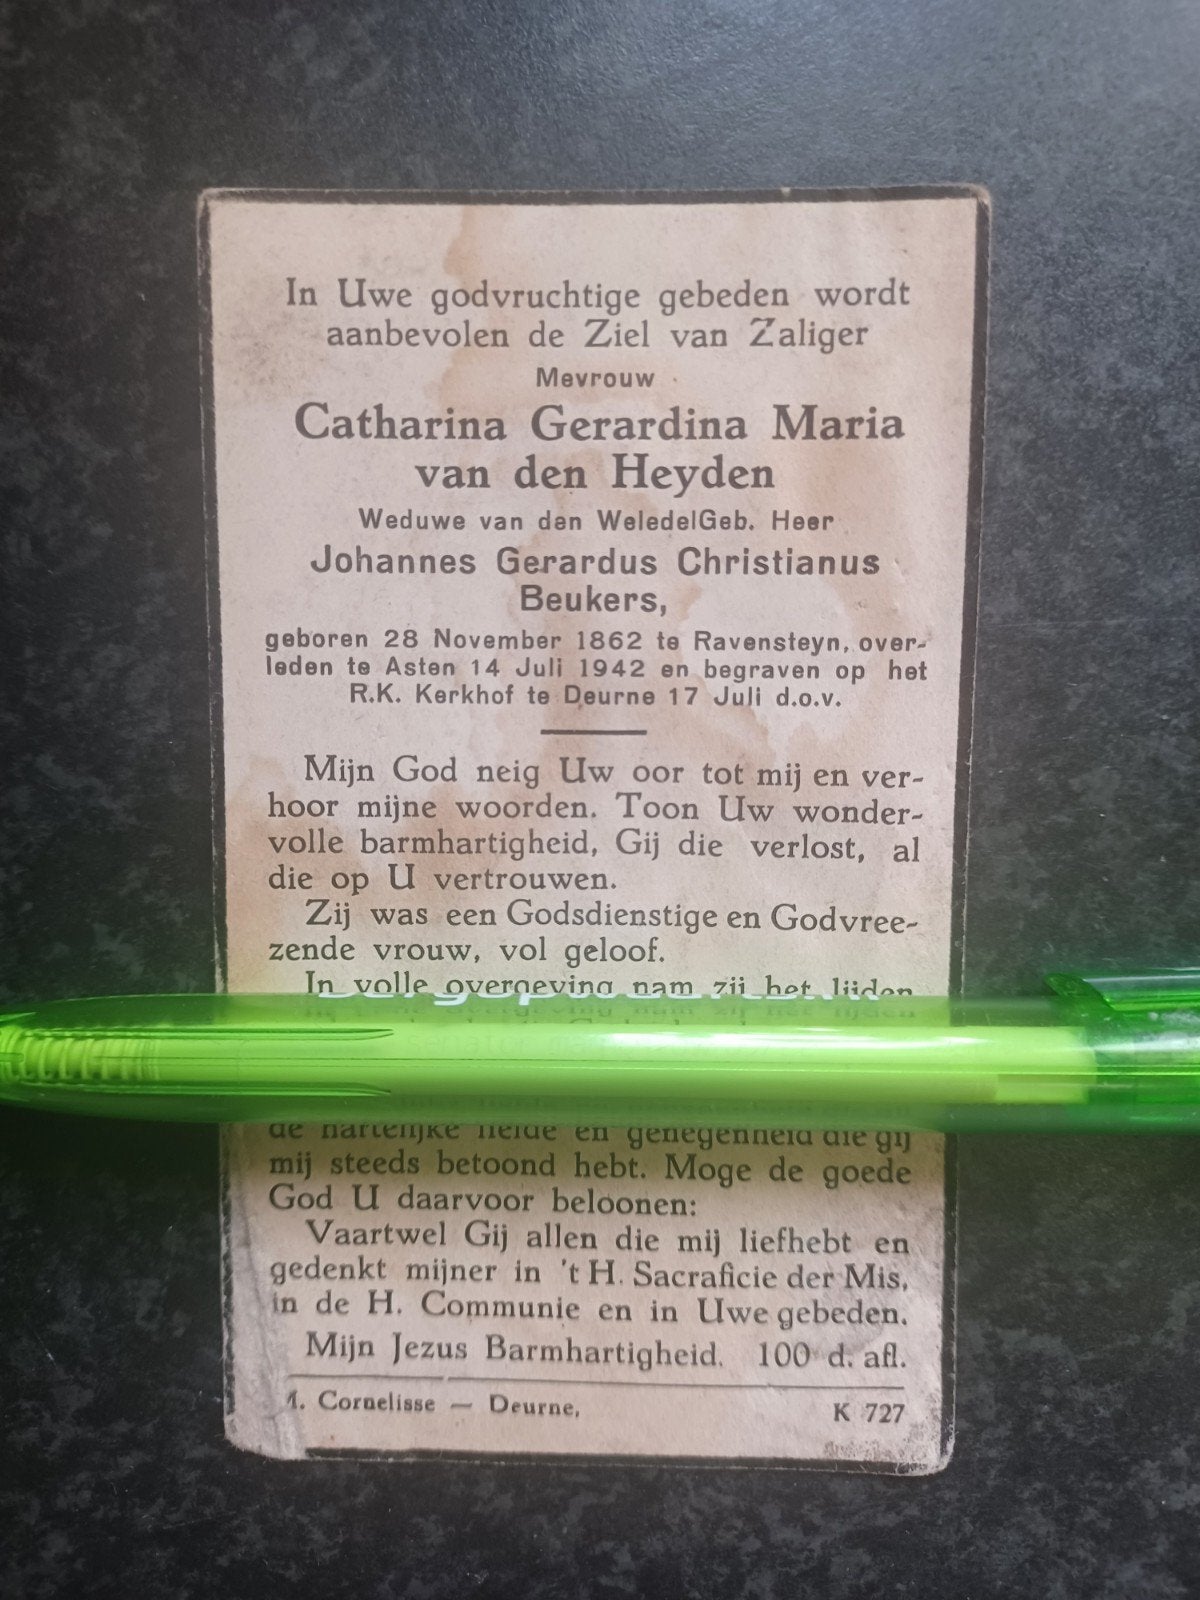 In Uwe godvruchtige gebeden wordt
aanbevolen de Ziel van Zaliger
Mevrouw
Catharina Gerardina Maria
van den Heyden
Weduwe van den WeledelGeb. Heer
Johannes Gerardus Christianus
Beukers,
geboren 28 November 1862 te Ravensteyn, over-
leden te Asten 14 Juli 1942 en begraven op het
R.K. Kerkhof te Deurne 17 Juli d.o.v.
Mijn God neig Uw oor tot mij en ver-
hoor mijne woorden. Toon Uw wonder-
volle barmhartigheid, Gij die verlost, al
die op U vertrouwen.
Zij was een Godsdienstige en Godvree-
zende vrouw, vol geloof.
In volle overgeving nam zij het lijden
senator
de hartelijke liefde en genegenheid die gij
mij steeds betoond hebt. Moge de goede
God U daarvoor beloonen:
Vaartwel Gij allen die mij liefhebt en
gedenkt mijner in 't H. Sacraficie der Mis,
in de H. Communie en in Uwe gebeden.
Mijn Jezus Barmhartigheid. 100 d. afl.
Cornelisse — Deurne,
K 727